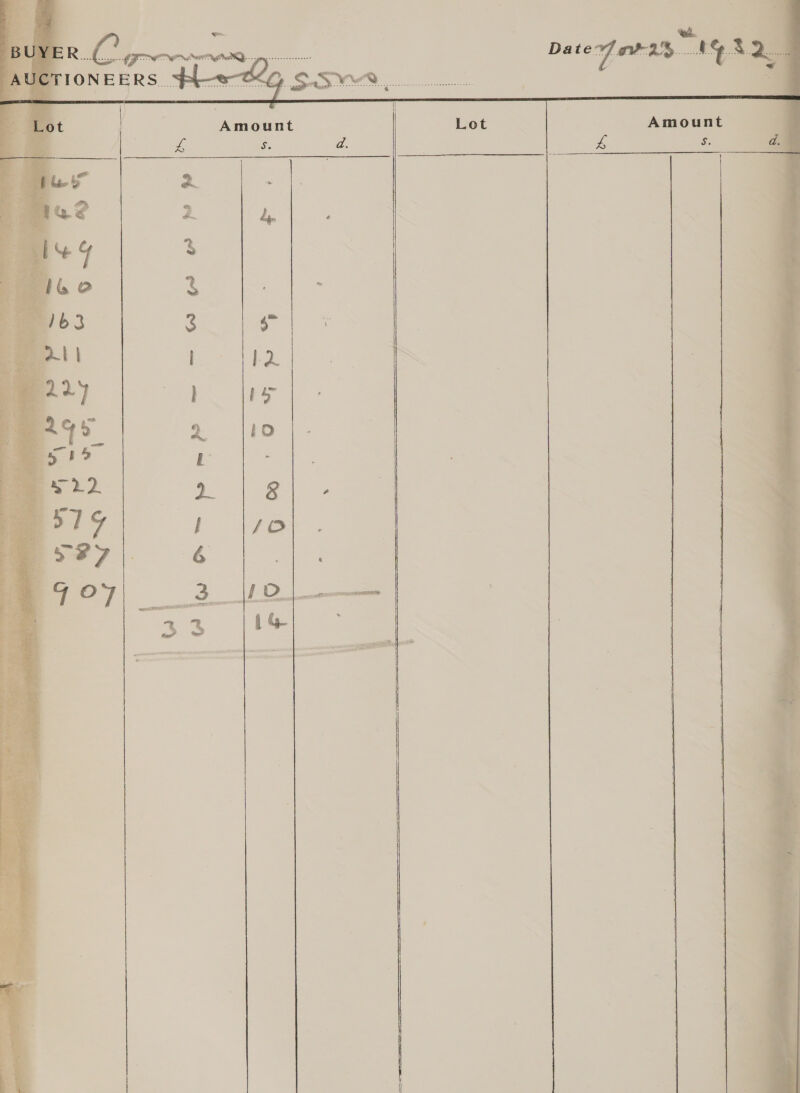 BUYER Date Nov 23rd 1932
AUCTIONEERS Hodgsons
Lot Amount Lot Amount
£ s. d. £ s. d.
145 2 -
148 2 4 -
149 3
160 3 . -
163 3 5
211 1 12
227 1 15 -
295 2 10 -
515 1 - -
522 2 8 -
579 1 10 -
587 6 . .
907 3 10
33 14 -